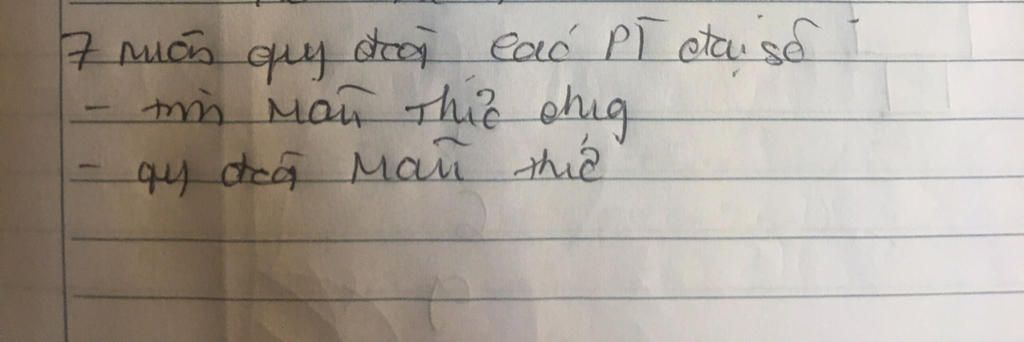 7 muốn quy đồng các PT đại số
- tìm mẫu thức chung
- quy đồng mẫu thức